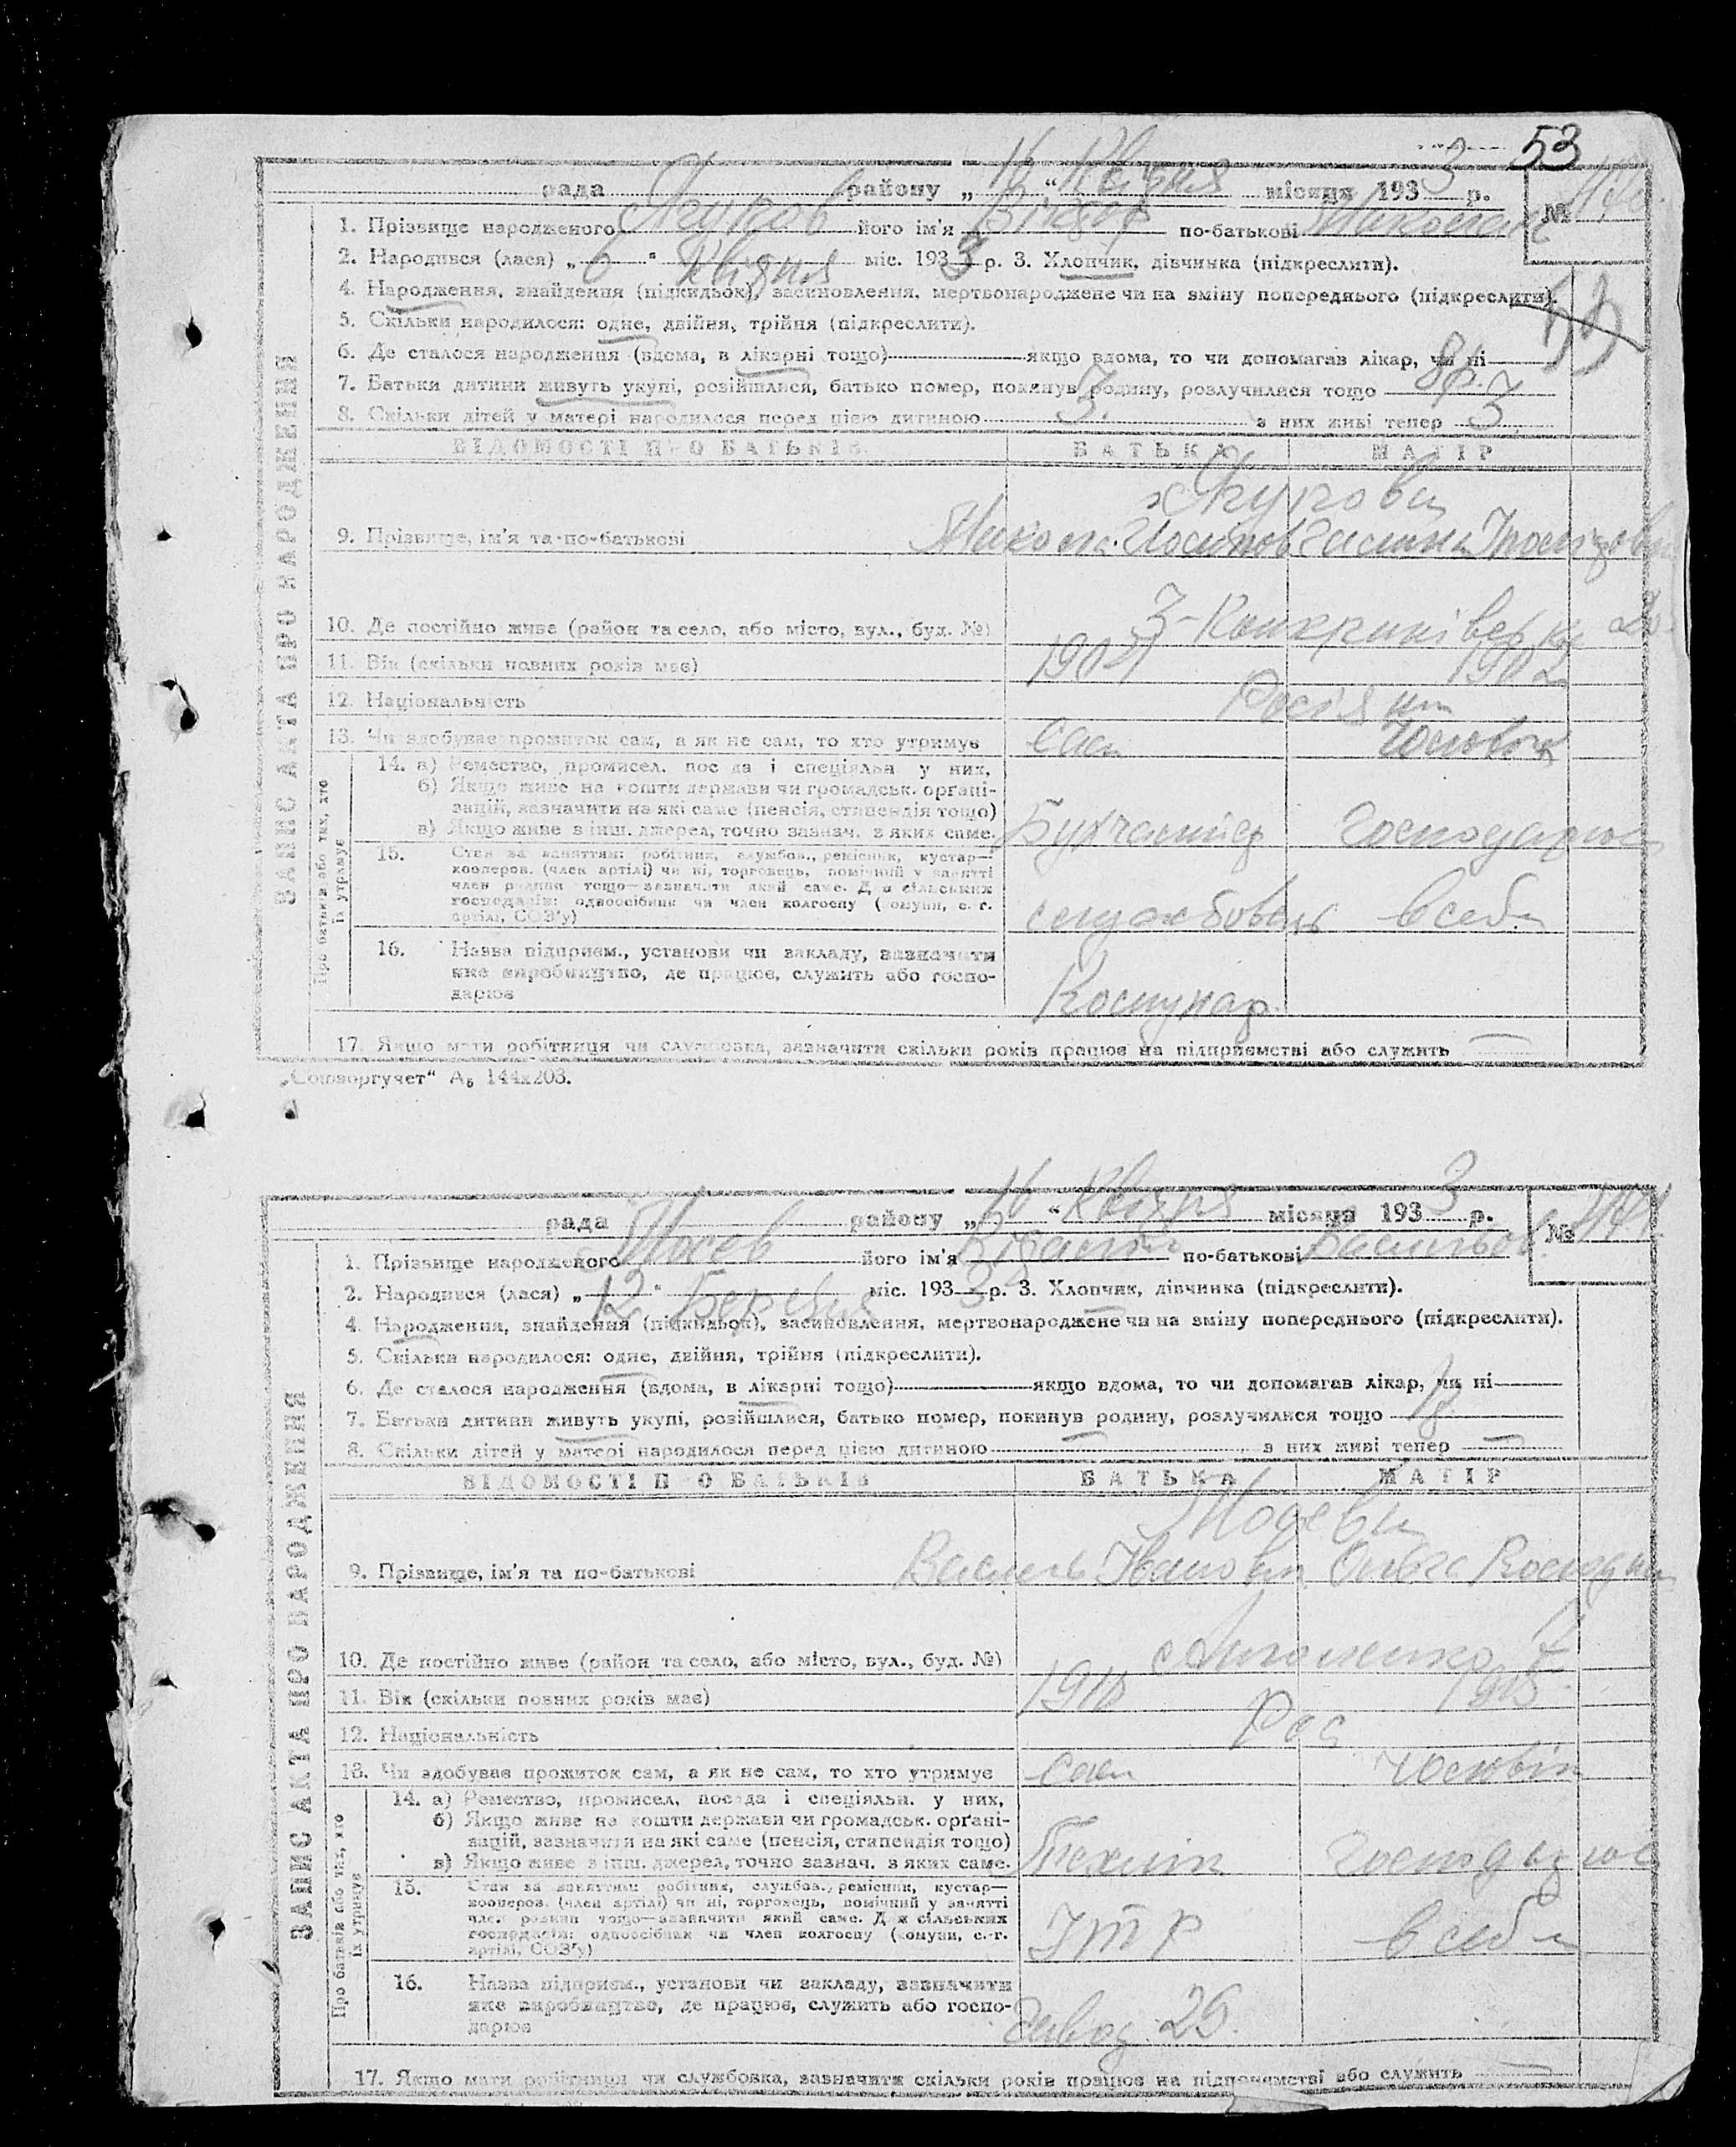 53
рада району „ 16 “ Квітня місяця 1933 р.
№
1. Прізвище народженого Жуков його ім'я Віктор по-батькові Микола
2. Народився (лася) „ 6 “ Квітня міс. 1933 р. 3. Хлопчик, дівчинка (підкреслити).
4. Народження, знайдення (підкидьок), засиновлення, мертвонароджене чи на зміну попереднього (підкреслити).
5. Скільки народилося: одне, двійня, трійня (підкреслити).
6. Де сталося народження (вдома, в лікарні тощо) якщо вдома, то чи допомагав лікар, чи ні
7. Батьки дитини живуть укупі, розійшлися, батько помер, покинув родину, розлучилися тощо 8р.
8. Скільки дітей у матері народилося перед цією дитиною 3. з них живі тепер 3
ВІДОМОСТІ ПРО БАТЬКІВ БАТЬКА МАТІР
ЗАПИС АКТА ПРО НАРОДЖЕННЯ
Жукови
9. Прізвище, ім'я та по-батькові Микола Йосипов Галина
10. Де постійно живе (район та село, або місто, вул., буд. №)
11. Вік (скільки повних років має) 1902
12. Національність Росіяни
13. Чи здобуває прожиток сам, а як не сам, то хто утримує Сам Чоловік
Про батьків або тих, хто їх утримує
14. а) Ремество, промисел, посада і спеціяльн. у них,
б) Якщо живе на кошти держави чи громадськ. орґані-
зацій, зазначити на які саме (пенсія, стипендія тощо)
в) Якщо живе з інш. джерел, точно зазнач. з яких саме. Бухгалтер Господарює
15. Стан за заняттям: робітник, службов., ремісник, кустар—
кооперов. (член артілі) чи ні, торговець, помічний у занятті
член родини тощо—зазначити який саме. Для сільських
господарів: одноосібник чи член колгоспу (комуни, с.-г.
артілі, СОЗ'у) службовець в себе
16. Назва підприєм., установи чи закладу, зазначити
яке виробництво, де працює, служить або госпо-
дарює Комунар
17. Якщо мати робітниця чи службовка, зазначити скільки років працює на підприємстві або служить
„Союзоргучет“ А5 144х203.
рада району „ 16 “ Квітня місяця 1933 р.
№
1. Прізвище народженого Мосев його ім'я Віталій по-батькові Васильов.
2. Народився (лася) „ 12 “ Березня міс. 1933 р. 3. Хлопчик, дівчинка (підкреслити).
4. Народження, знайдення (підкидьок), засиновлення, мертвонароджене чи на зміну попереднього (підкреслити).
5. Скільки народилося: одне, двійня, трійня (підкреслити).
6. Де сталося народження (вдома, в лікарні тощо) якщо вдома, то чи допомагав лікар, чи ні
7. Батьки дитини живуть укупі, розійшлися, батько помер, покинув родину, розлучилися тощо
8. Скільки дітей у матері народилося перед цією дитиною — з них живі тепер —
ВІДОМОСТІ ПРО БАТЬКІВ БАТЬКА МАТІР
ЗАПИС АКТА ПРО НАРОДЖЕННЯ
Мосеви
9. Прізвище, ім'я та по-батькові Василь Іванович Ольга
10. Де постійно живе (район та село, або місто, вул., буд. №)
11. Вік (скільки повних років має) 1910
12. Національність Рос
13. Чи здобуває прожиток сам, а як не сам, то хто утримує Сам Чоловік
Про батьків або тих, хто їх утримує
14. а) Ремество, промисел, посада і спеціяльн. у них,
б) Якщо живе на кошти держави чи громадськ. орґані-
зацій, зазначити на які саме (пенсія, стипендія тощо)
в) Якщо живе з інш. джерел, точно зазнач. з яких саме. Технік Господарює
15. Стан за заняттям: робітник, службов., ремісник, кустар—
кооперов. (член артілі) чи ні, торговець, помічний у занятті
член родини тощо—зазначити який саме. Для сільських
господарів: одноосібник чи член колгоспу (комуни, с.-г.
артілі, СОЗ'у) ІТР в себе
16. Назва підприєм., установи чи закладу, зазначити
яке виробництво, де працює, служить або госпо-
дарює Завод 29.
17. Якщо мати робітниця чи службовка, зазначити скільки років працює на підприємстві або служить